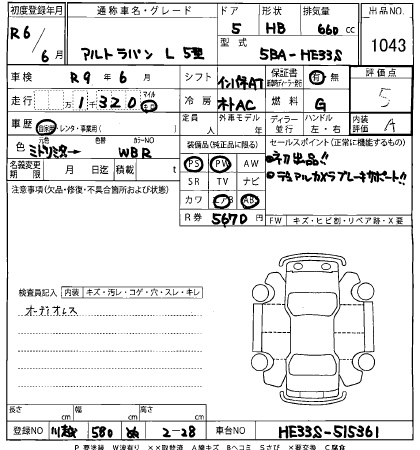 初度登録年月 通称車名・グレード ドア 形状 排気量 出品No.
R6/6月 アルトラパン L 5型 5 HB 660cc 1043
型式 5BA-HE33S
車検 R9年6月 シフト インパネAT 保証書 有 無 評価点 5
走行 万1千320 マイル km 冷房 オートAC 燃料 G
車歴 自家用・レンタ・事業用( ) 定員 人 外車モデル 年 ディーラー 並行 ハンドル 左・右 内装評価 A
色 元色 色替 カラーNO 装備品(純正品に限る) セールスポイント(正常に機能するもの)
WBR PS PW AW 初出品!!
名義変更期限 月 日迄 積載 t SR TV ナビ デュアルカメラブレーキサポート!!
注意事項(欠品・修復・不具合箇所および状態) カワ エアB ABS
R券 5670円 FW キズ・ヒビ割・リペア跡・X要
検査員記入 内装 キズ・汚レ・コゲ・穴・スレ・キレ
オーディオレス
長さ cm 幅 cm 高さ cm
登録NO 580 2-28 車台No HE33S-515361
P要塗装 W波有り XX取替済 A線キズ Bヘコミ Sさび X要交換 C腐食